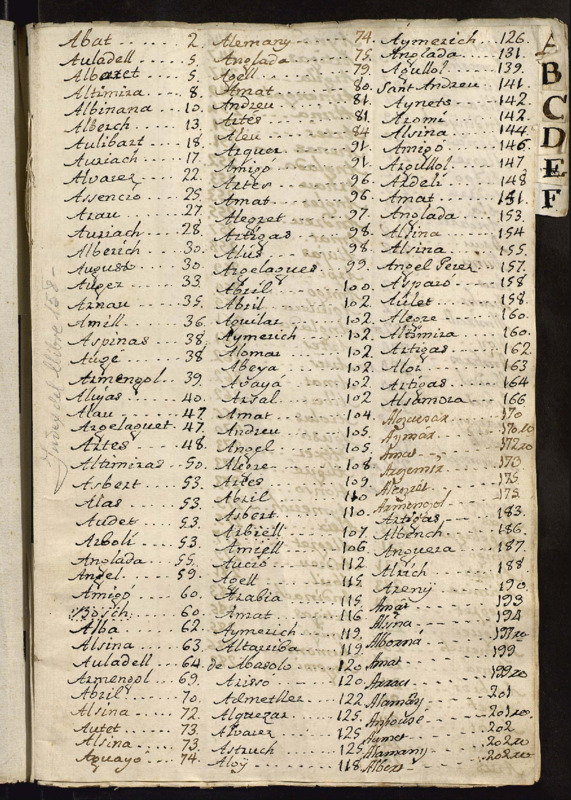 Abat ...... 2.
Auladell ... 5.
Albaret ... 5.
Altimira ... 8.
Albinana ... 10.
Alberch ... 13.
Aulibart ... 18.
Auriach ... 17.
Alvarez ... 22.
Assencio ... 25
Arau ... 27.
Auriach ... 28.
Alberich ... 30.
August ... 30.
Auger ... 33
Arnau ... 35.
Amill ... 36.
Aspinas ... 38.
Auge ... 38
Armengol .. 39.
Alujas ... 40.
Alau ... 47.
Argelaguet . 47.
Artes ... 48.
Altimiras .. 50.
Asbert ... 53.
Alas ... 53.
Audet ... 53.
Arboli ... 53
Anglada ... 55.
Angel ... 59.
Amigó ... 60.
Bosch ... 60.
Alba ... 62.
Alsina ... 63.
Auladell ... 64.
Armengol ... 69.
Abril ... 70.
Alsina ... 72.
Autet ... 73.
Alsina ... 73.
Aguayo ... 74.
Alemany ... 74.
Anglada ... 75.
Agell ... 79.
Amat ... 80.
Andreu ... 81.
Artes ... 81.
Aleu ... 84
Arquer ... 91.
Amigó ... 91.
Artes ... 96.
Amat ... 96.
Alegret ... 97.
Artigas ... 98.
Alus ... 98.
Argelagues .. 99.
Abril ... 100.
Abril ... 102.
Aguilar ... 102.
Aymerich ... 102.
Alomar ... 102.
Abeya ... 102.
Avayá ... 102.
Arfal ... 102.
Amat ... 104.
Andreu ... 105.
Angel ... 105.
Alegre ... 108.
Artes ... 109.
Abril ... 110
Asbert ... 110.
Arbiell ... 107.
Amiell ... 106.
Aucio ... 112.
Agell ... 115.
Arabia ... 115.
Amat ... 116
Aymerich ... 119.
Altarriba ... 119.
de Abasolo .. 120.
Arissó ... 120.
Admetller ... 122.
Alquezar ... 125.
Alvarez ... 125.
Astruch ... 125
Aloy ... 118.
Aymerich ... 126.
Anglada ... 131.
Agullol ... 139.
Sant Andreu . 141.
Aynets ... 142.
Aromi ... 142.
Alsina ... 144.
Amigó ... 146.
Argullol ... 147
Ardeli ... 148
Amat ... 151.
Anglada ... 153.
Alsina ... 154
Alsina ... 155.
Angel Perez .. 157.
Asparo ... 158
Aulet ... 158.
Alegre ... 160.
Altimira ... 160.
Artigas ... 162.
Aloi ... 163
Artigas ... 164
Alsamora ... 166
170
Aymar ... 170
Amat ... 172
173
Alegret ... 175
Armengol ... 175.
Artigas ... 183.
Albench ... 186.
Anguera ... 187.
Alrich ... 188
Areny ... 190.
Amat ... 193
Alsina ... 194
197
199
Amat ... 199
201
Alamany ... 201
202
Aumet ... 202
Alamany ... 202
Albert
A
B
C
D
E
F